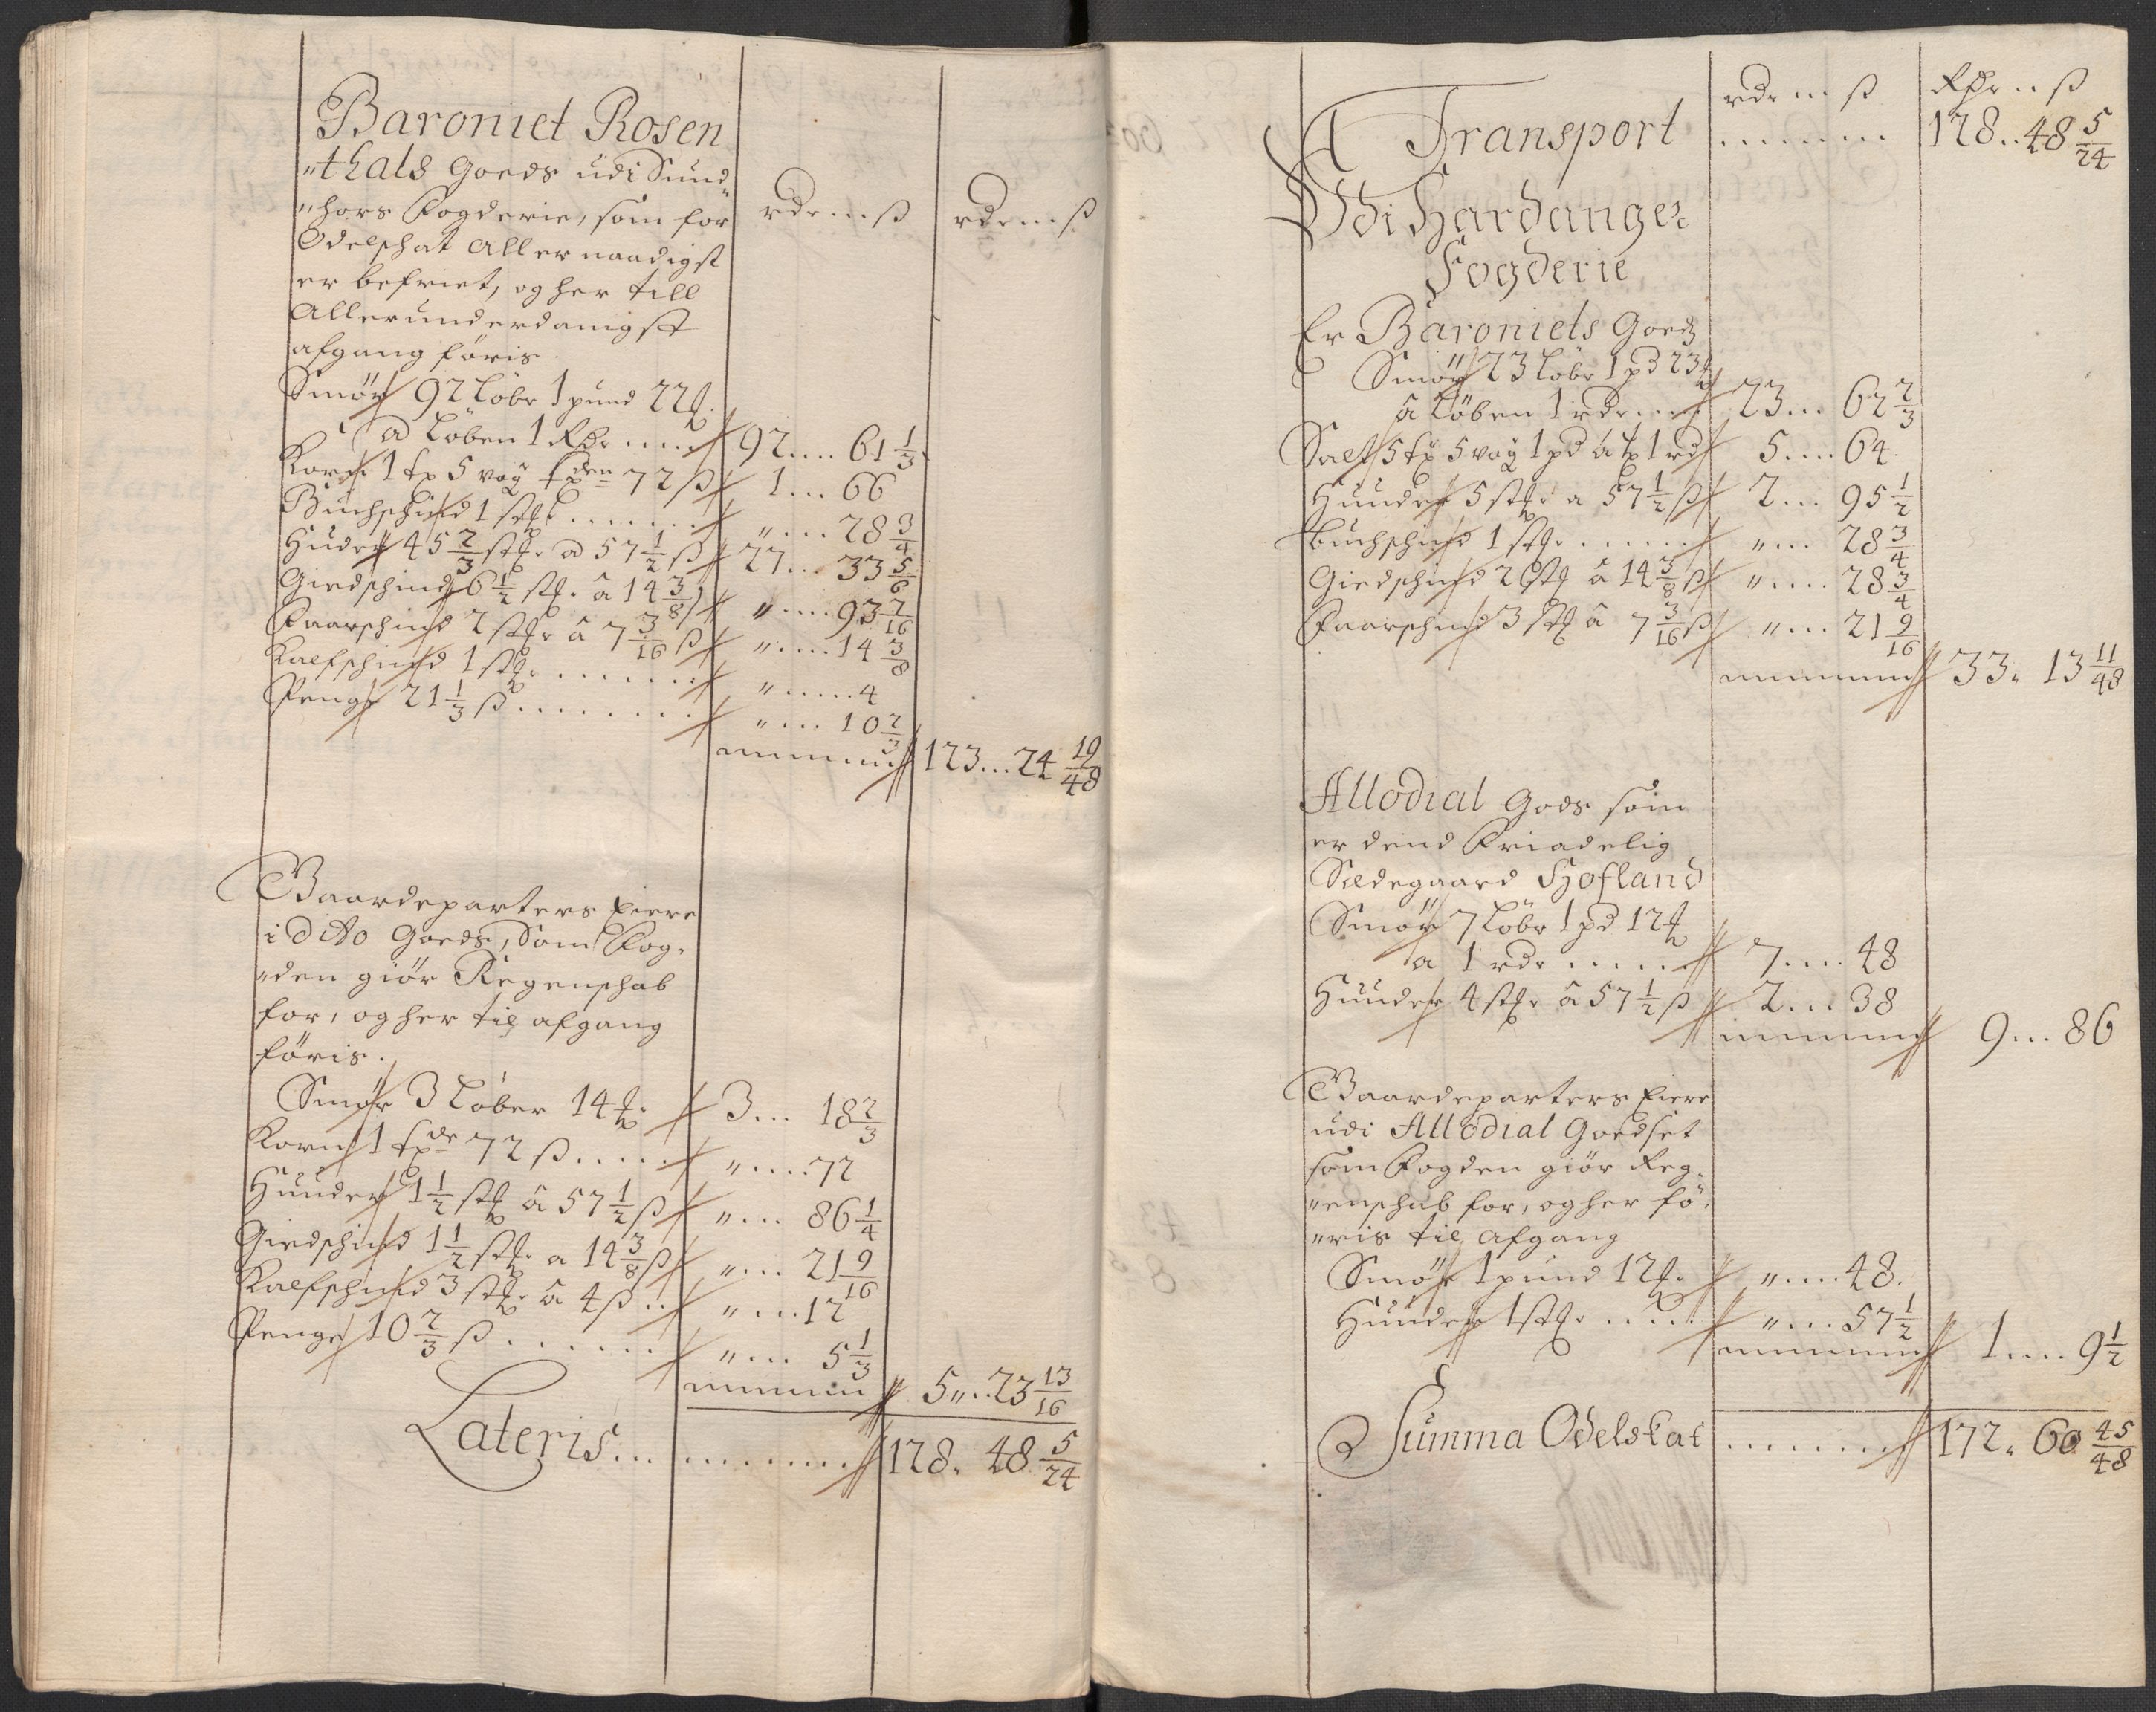 Baroniet Rosen
"thals Goeds udi Sund-
"hors Fogderie, som for rdr ... ß rdr ... ß
Odelschat Allernaadigst
er befriet, og her till
Allerunderdanigst
afgang föris
Smör 92 Löbr 1 pund 22 ℔
a Löben 1 Rdr .... 92 .... 61 1/3
Korn 1 tp 5 vog tpden 72 ß 1 ... 66
Buchschind 1 stk ....... " .... 28 3/4
Huder 45 2/3 stk. a 57 1/2 ß 27 ... 33 5/6
Giedschind 6 1/2 stk. â 14 3/8 ß " .... 93 7/16
Faarschind 2 stkr â 7 3/16 ß " .... 14 3/8
Kalfschind 1 stk. ....... " ..... 4
Penge 21 1/3 ß ......... " ... 10 2/3
123 ... 24 19/48
Gaardeparters Eiere
i dito Goeds, Som Fog-
"den giör Regenschab
for, og her til afgang
föris.
Smör 3 Löber 14 ℔. 3 ... 18 2/3
Korn 1 tpde 72 ß ..... " .... 72
Hunder 1 1/2 stk â 57 1/2 ß " ... 86 1/4
Giedschind 1 1/2 stk. a 14 3/8 ß " ... 21 9/16
Kalfschind 3 stk. â 4 ß .. " ... 12
Penge 10 2/3 ß ....... " ... 5 1/3
5 " .. 23 13/16
Lateris ... ........ 128. 48 5/24
rdr ... ß Rdr .. ß
A Transport ....... 128 .. 48 5/24
Udi Hardanger
Fogderie
Er Baroniets Goeds
Smör 23 Löbr 1 pd 23 ℔
â Löben 1 rdr .... 23 ... 62 2/3
Salt 5 tp 5 vog 1 pd â tp 1 rd 5 .... 64
Hunder 5 stkr a 57 1/2 ß 2 ... 95 1/2
buchschind 1 stkr ....... " ... 28 3/4
Giedschind 2 stk â 14 3/8 ß " .... 28 3/4
Faarschind 3 stk â 7 3/16 ß " ... 21 9/16
33. 13 11/48
Allodial Gods som
er dend Friadelig
Sædegaard Hofland
Smör 7 Löbr 1 pd 12 ℔
a 1 rdr ...... 7 .... 48
Hunder 4 stkr â 57 1/2 ß 2 ... 38
9 ... 86
Gaardeparters Eiere
udi Allodial Goedset
som Fogden giör Reg-
"enschab for, og her fö-
"ris til Afgang
Smör 1 pund 12 ℔. " .... 48.
Hunder 1 stkr ..... " ... 57 1/2
1 .... 9 1/2
Summa Odelskat ........ 172. 60 45/48